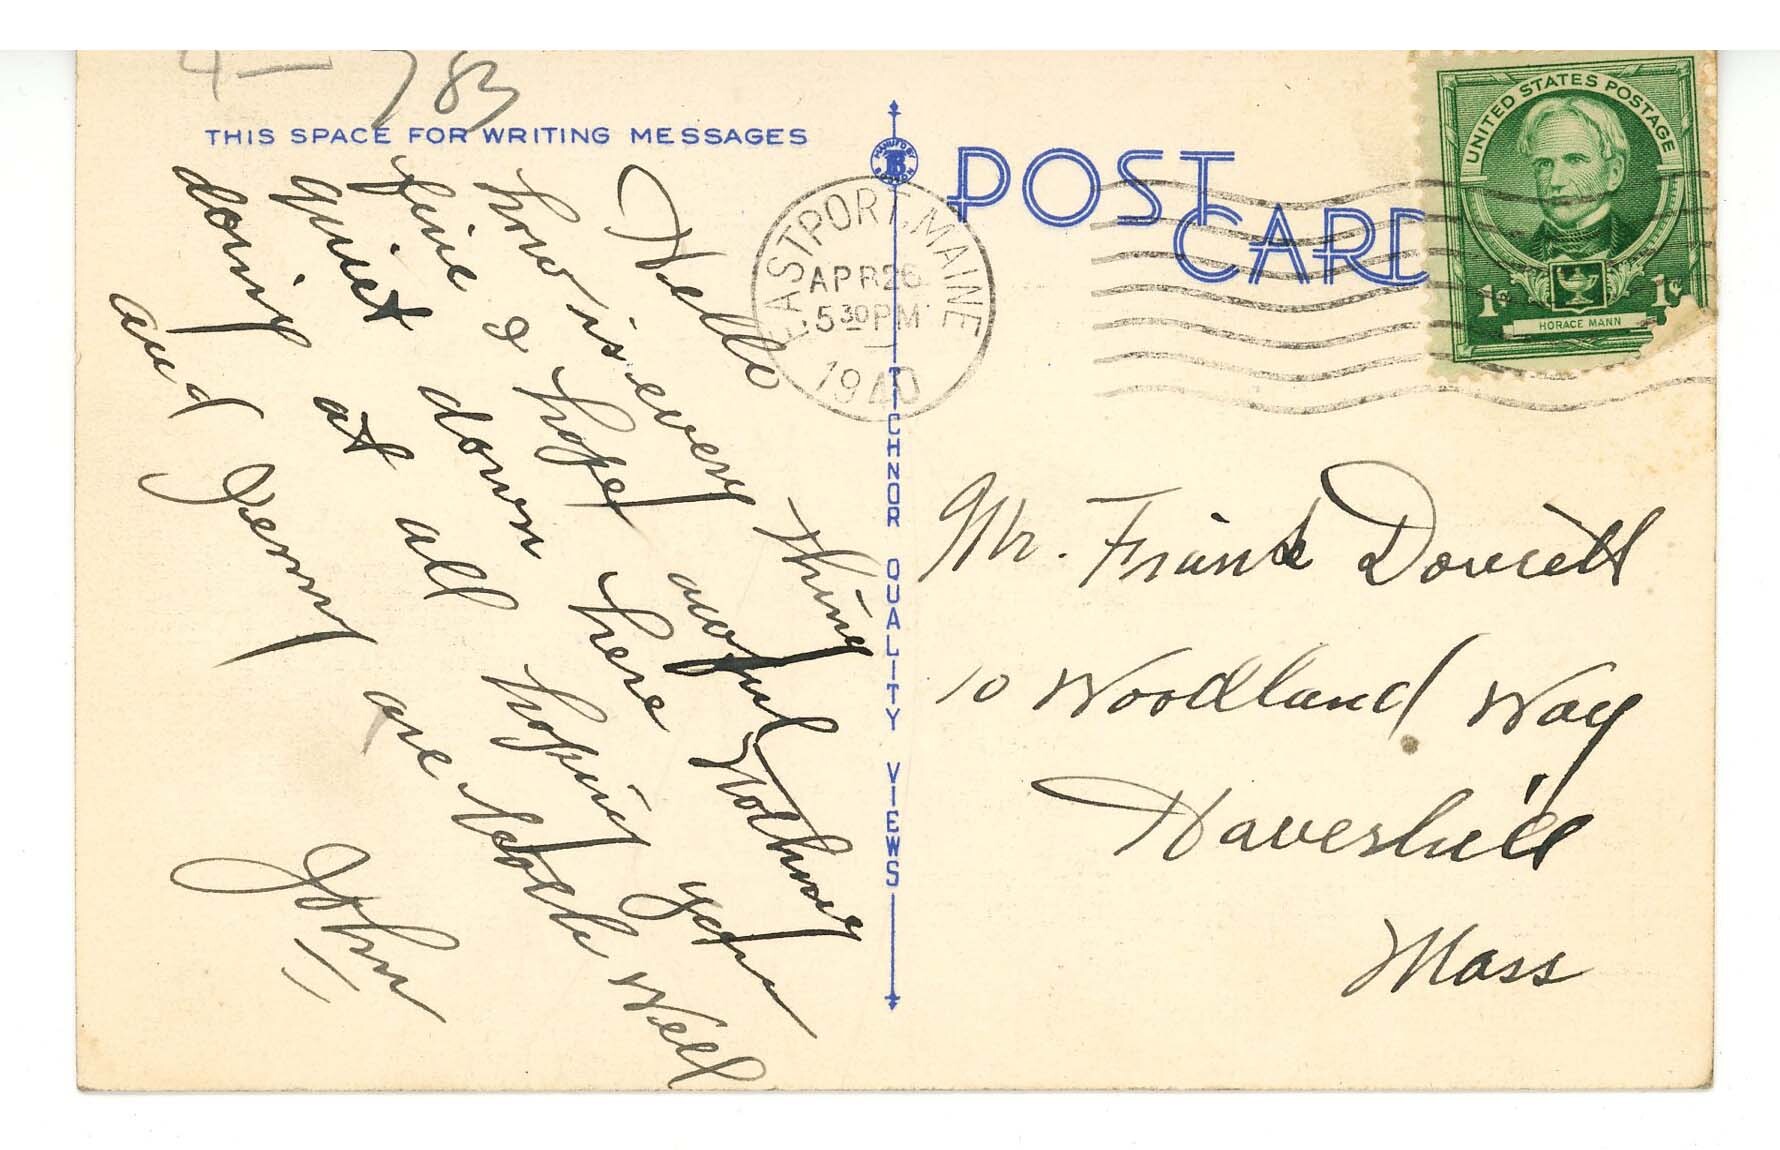 4 — 783
THIS SPACE FOR WRITING MESSAGES
Hello
how is every thing
fine I hope awful
quiet down here nothing
doing at all hoping you
and Jenny are both well
John
MANUF'D BY
BOSTON
TICHNOR QUALITY VIEWS
POST
CARD
EASTPORT, MAINE
APR 26
5 30 PM
1940
UNITED STATES POSTAGE
1¢ 1¢
HORACE MANN
Mr. Frank
10 Woodland Way
Haverhill
Mass